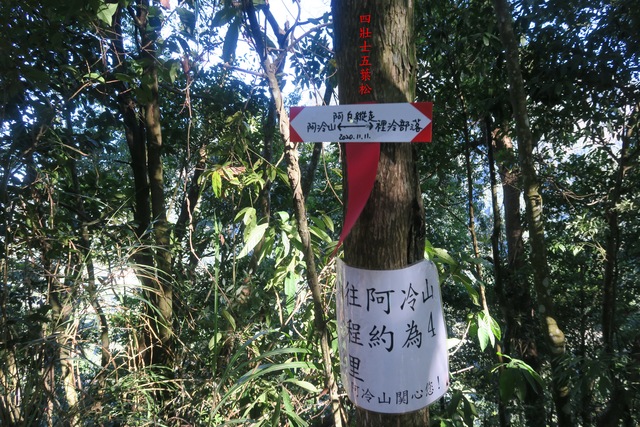 四壯士五葉松
阿白縱走
阿冷山 裡冷部落
2020.11.11.
往阿冷山
程約為4
里
阿冷山関心您!